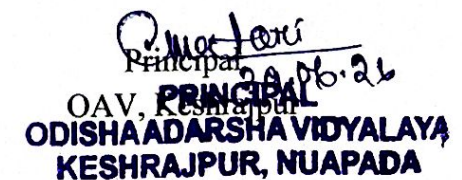 Principal
20.06.26
OAV, Keshrajpur
PRINCIPAL
ODISHA ADARSHA VIDYALAYA
KESHRAJPUR, NUAPADA